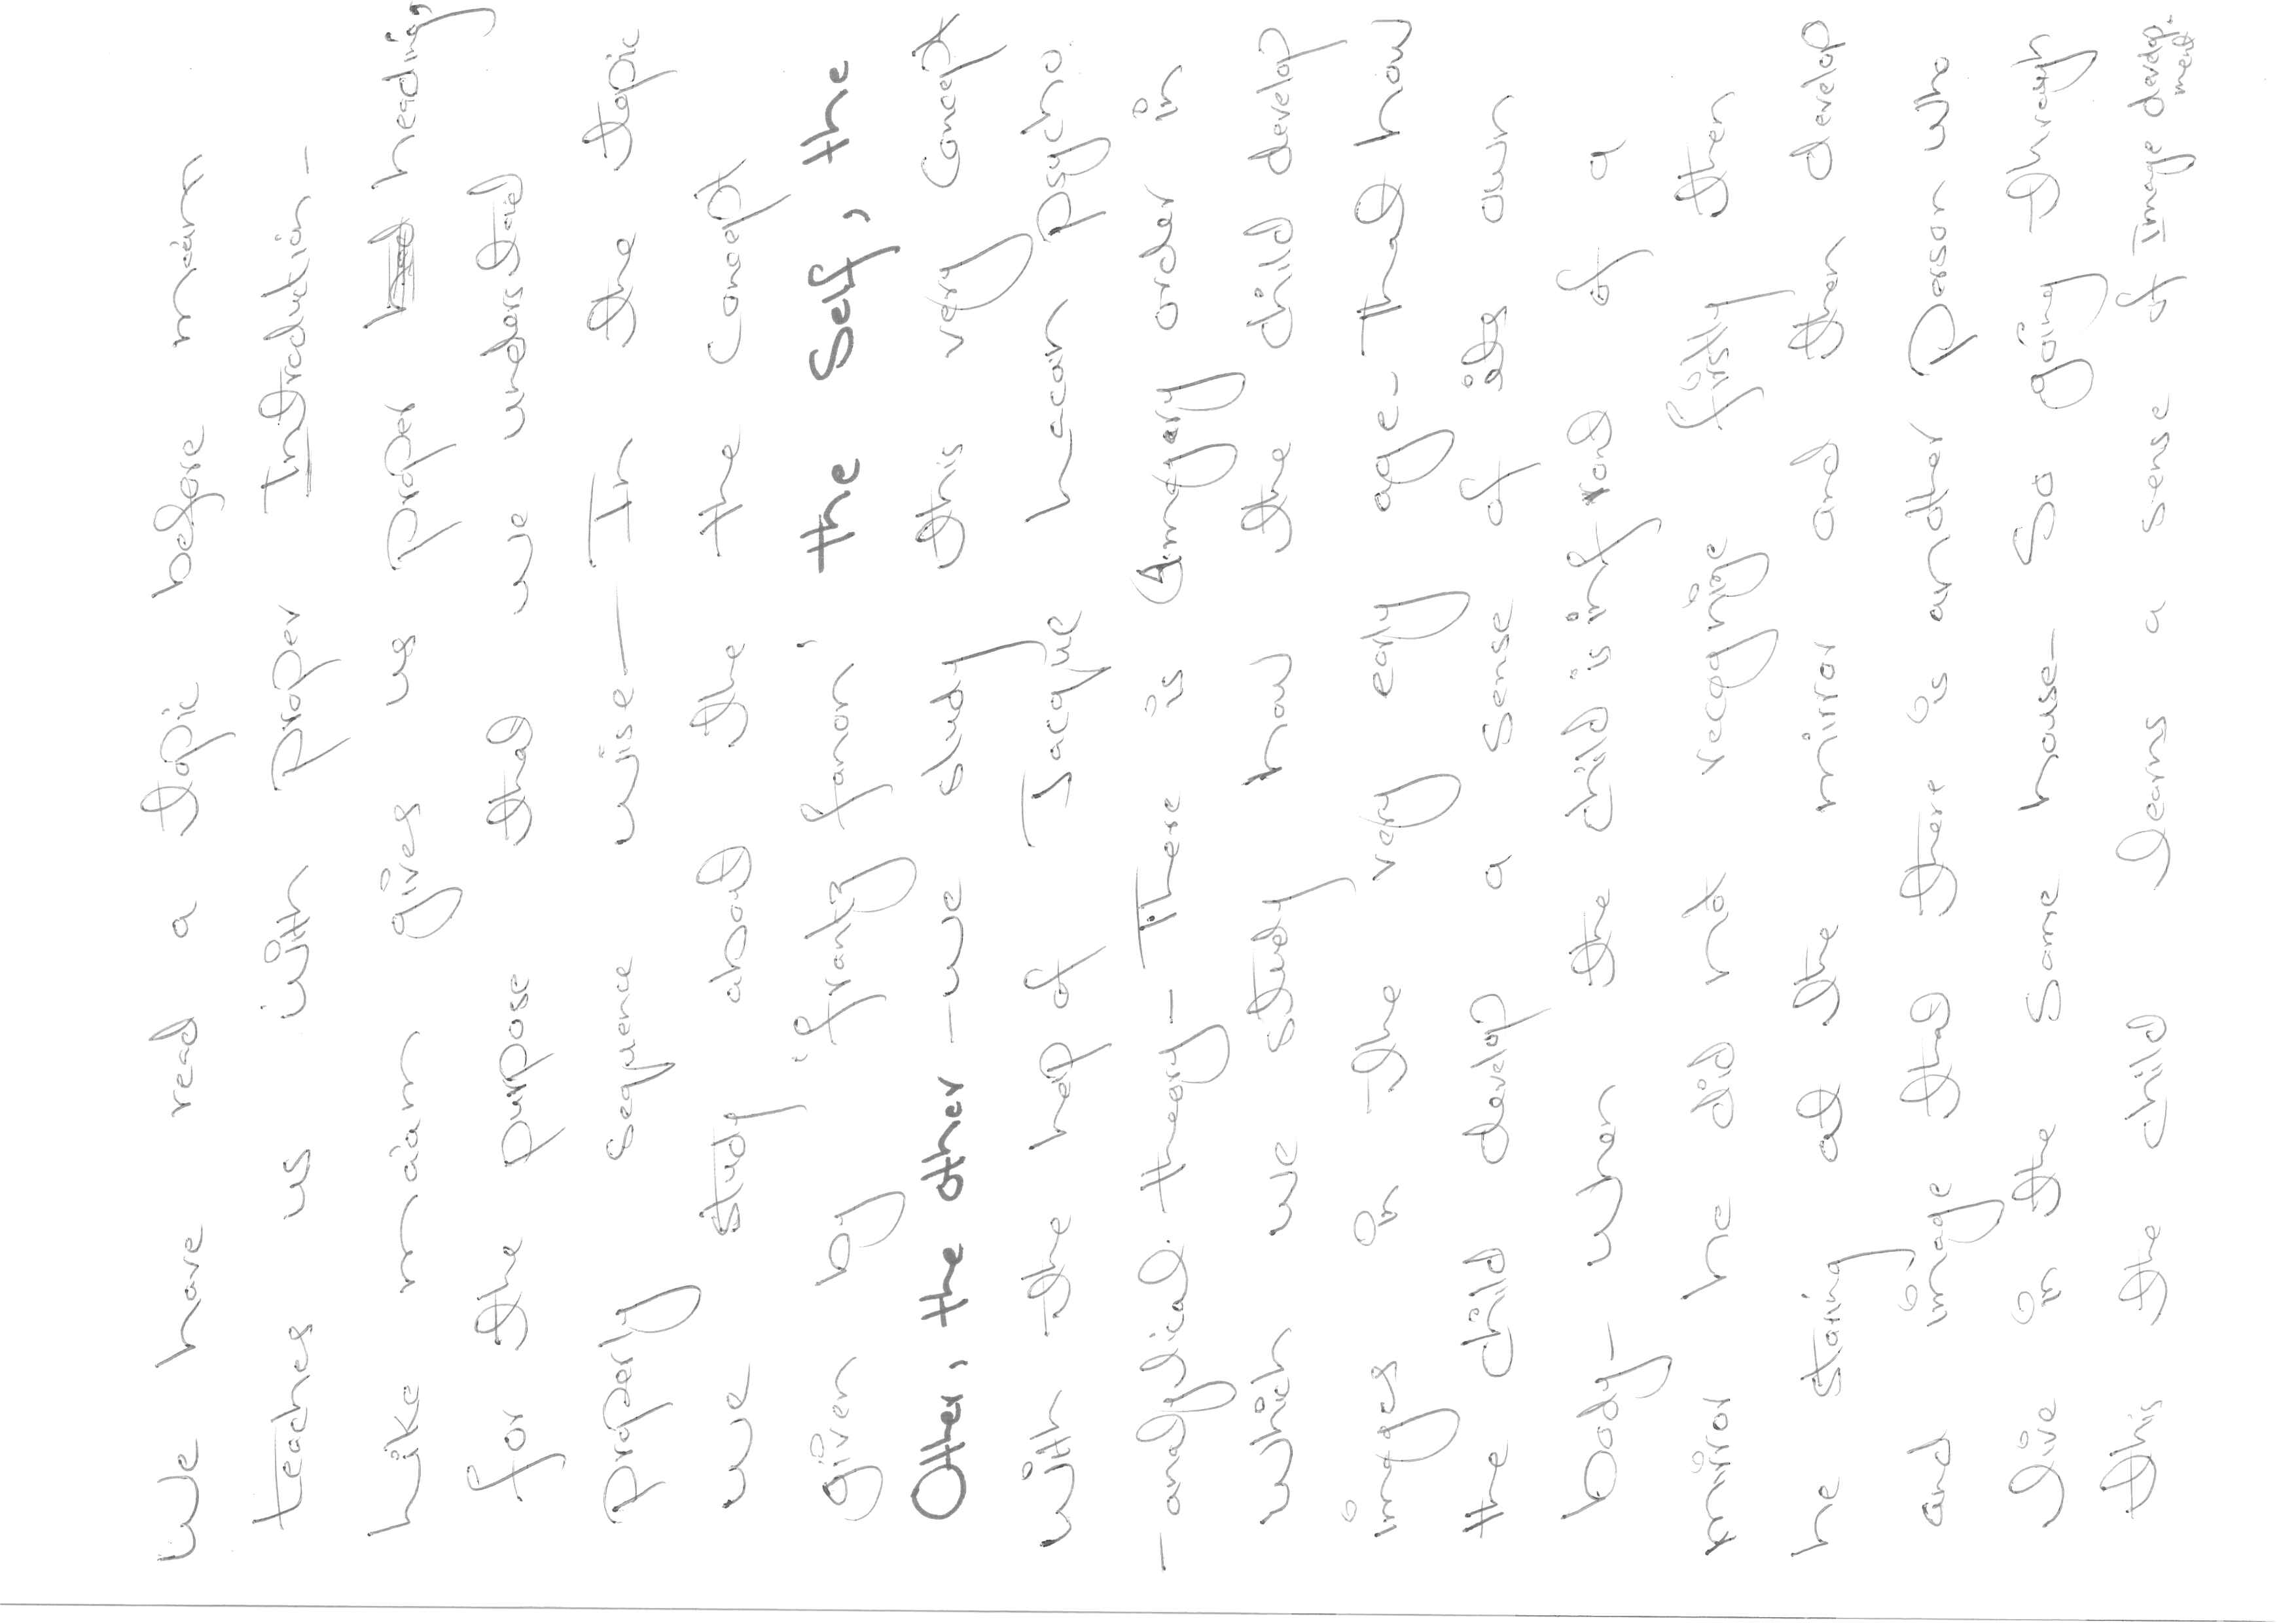 We have read a topic before ma'am
teaches us with proper Introduction-
Like ma'am gives us proper heading,
for the purpose that we understand
properly sequence wise- In the topic
we study about the the concept
given by 'frantz fanon' the Self, the
Other, the other -we study this very concept
with the help of Jacque Lacan psycho
-analytical theory- There is Imagary order in
which we study how the child develop
images in the very early age- That how
the child develop a sense of its own
body- when the child is infront of a
mirror he did not recognize firstly then
he staring at the mirror and then develop
and image that there is another person who
live in the same house- So going through
this the child learns a sense of Image develop-
ment